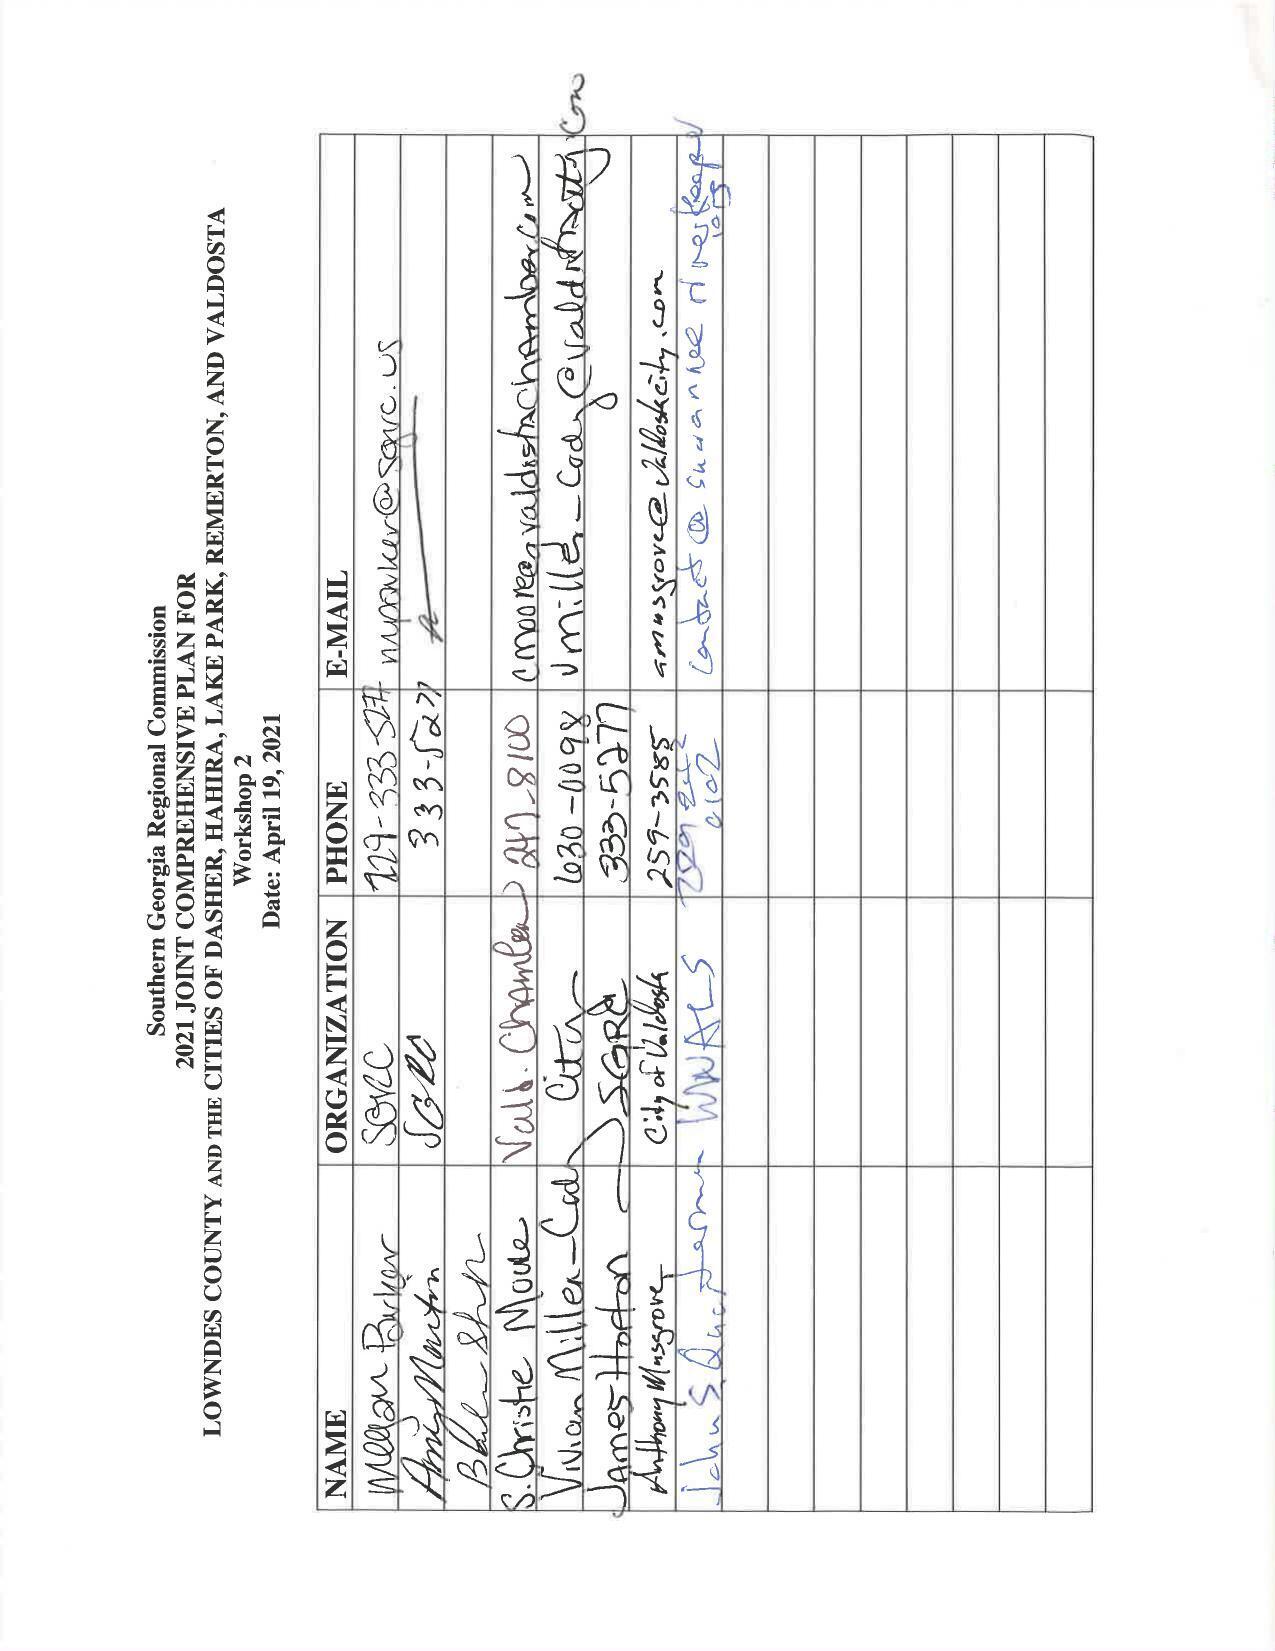 Southern Georgia Regional Commission
2021 JOINT COMPREHENSIVE PLAN FOR
LOWNDES COUNTY AND THE CITIES OF DASHER, HAHIRA, LAKE PARK, REMERTON, AND VALDOSTA
Workshop 2
Date: April 19, 2021
NAME ORGANIZATION PHONE E-MAIL
Parker SGRC 229-333-5277 @sgrc.us
Amy Martin SGRC 333-5277
S. Christie Moore Vald. Chamber 247-8100 cmoore@valdostachamber.com
Vivian Miller-Cody City 630-0098 vmiller-cody@valdostacity.com
James Horton SGRC 333-5277
Anthony Musgrove City of Valdosta 259-3585 amusgrove@valdostacity.com
John S. Quarterman WWALS contact@suwanneeriverkeeper
.org
0102